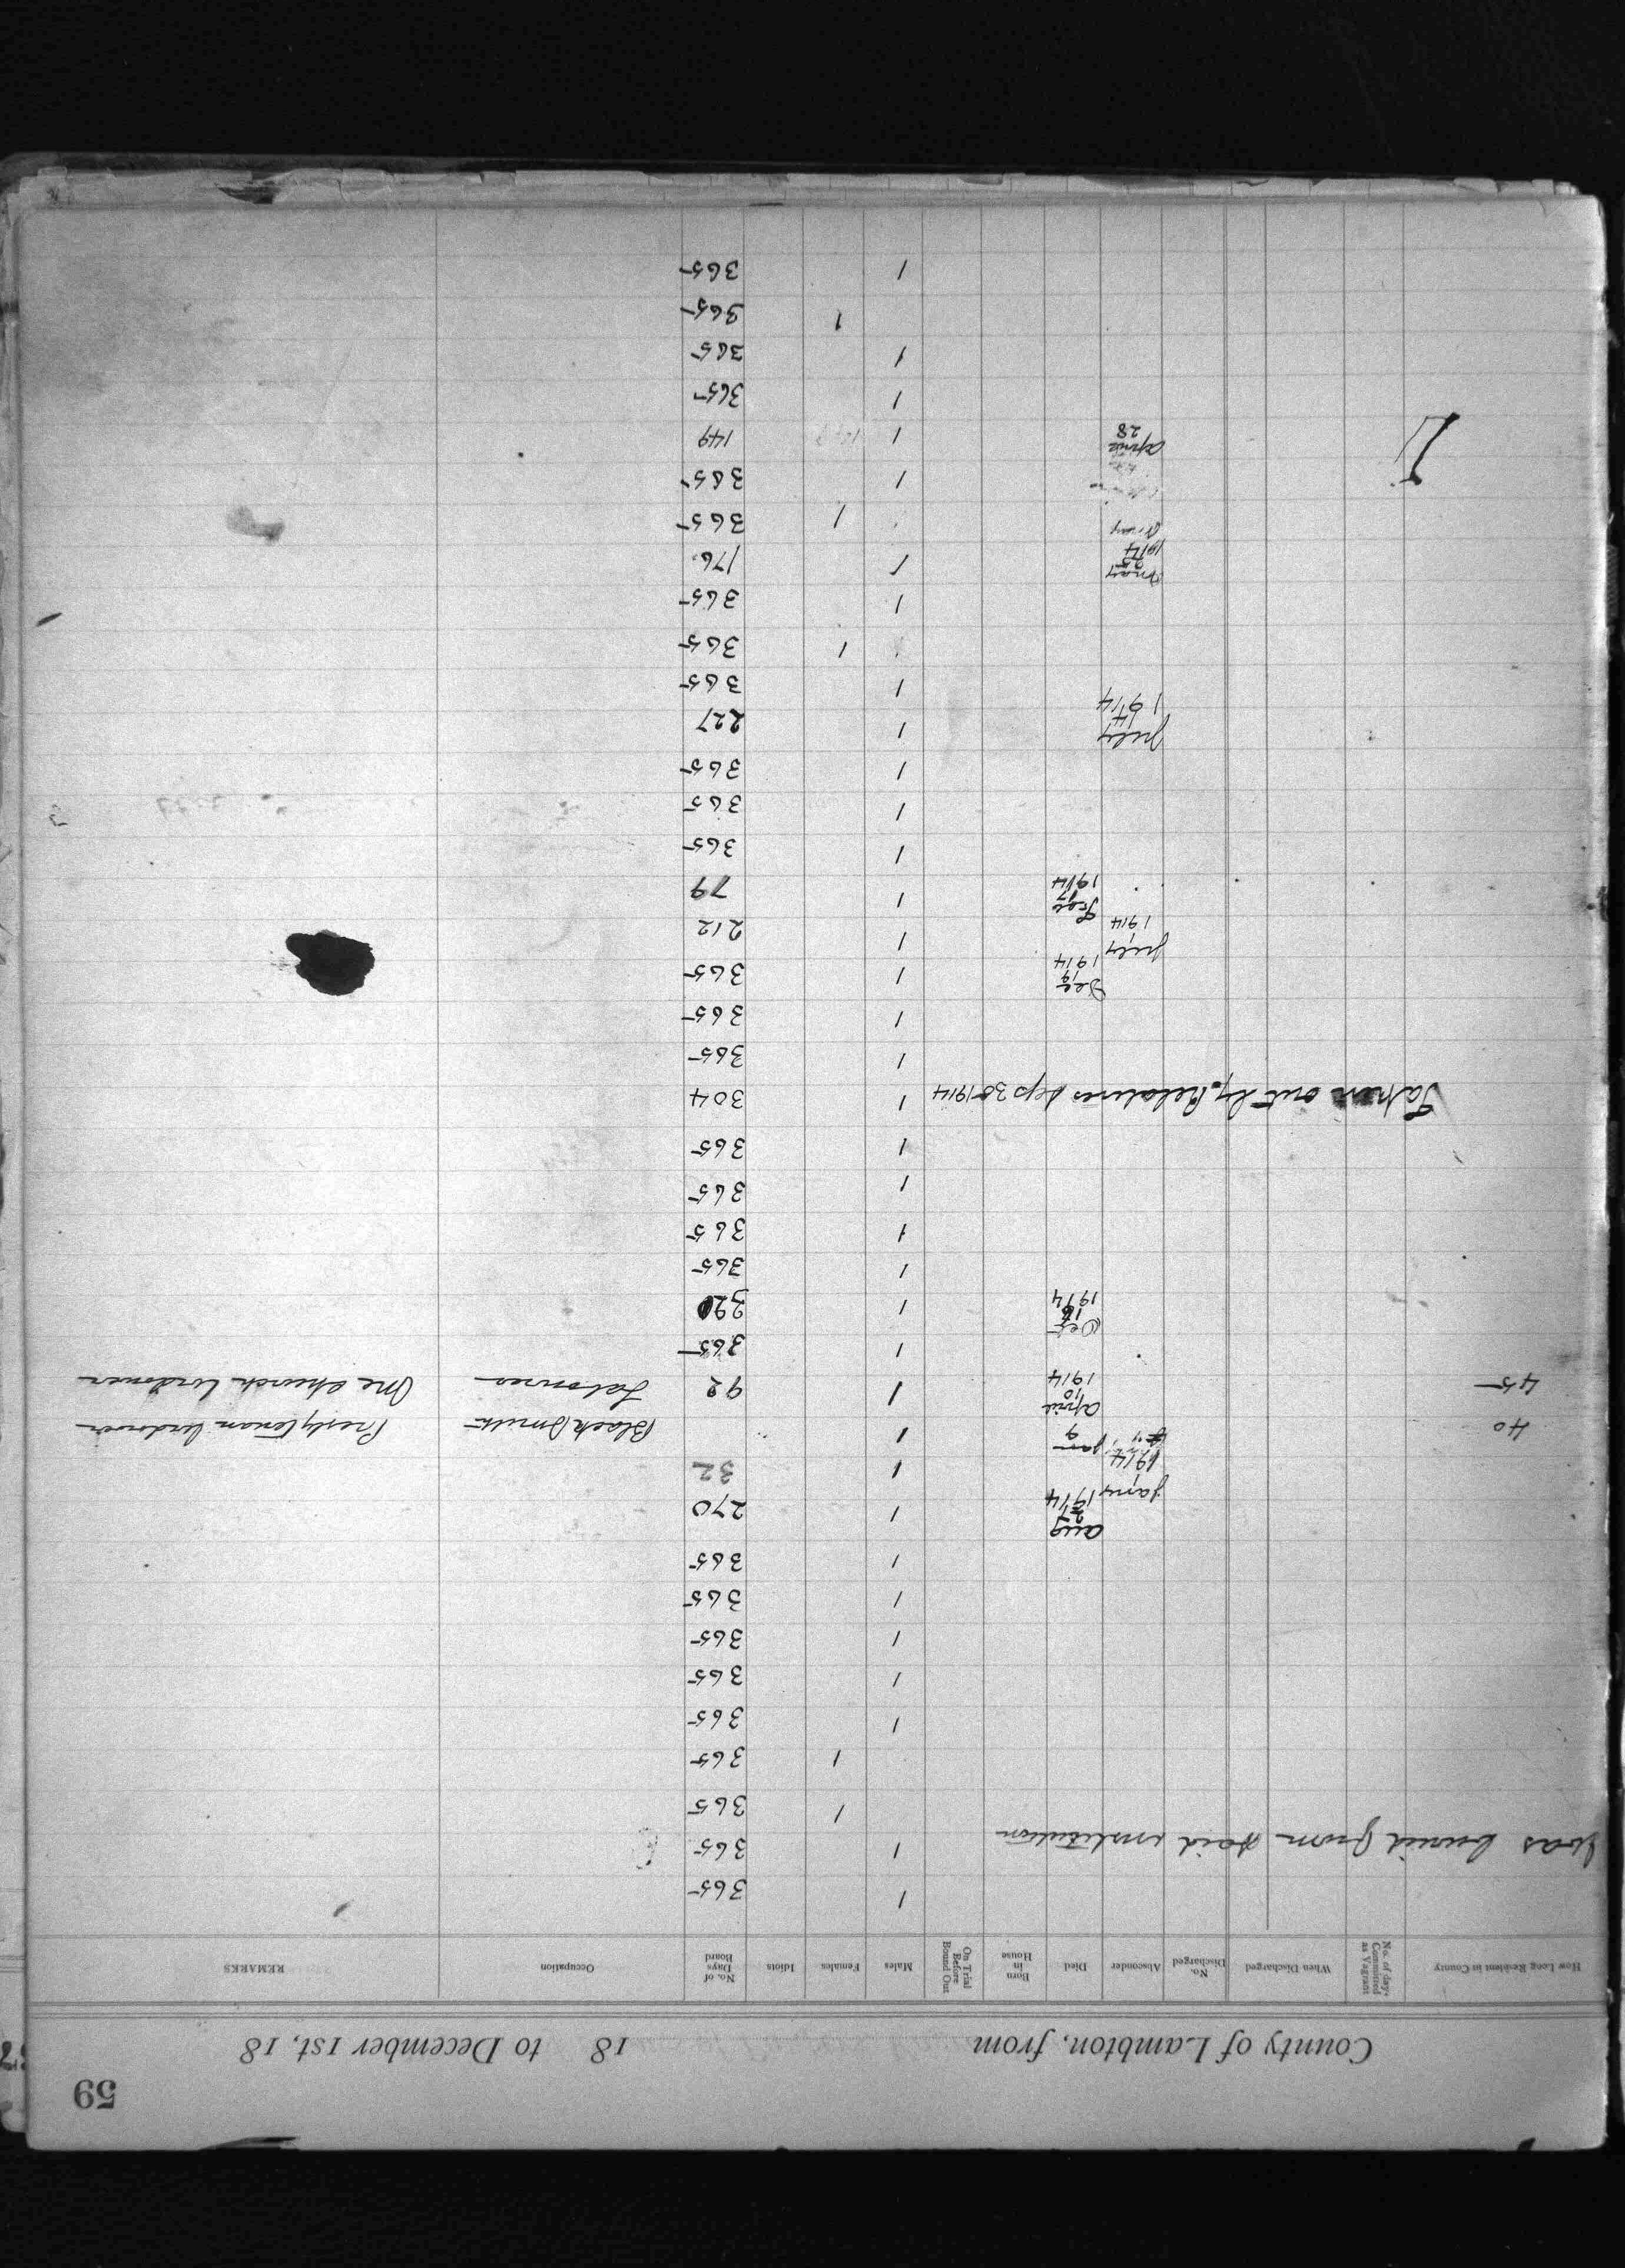 59
County of Lambton, from 18 to December 1st, 18
How Long Resident in County No. of days Committed as Vagrant When Discharged No. Discharged Absconder Died Born in House On Trial Before Bound Out Males Females Idiots No. of Days Board Occupation REMARKS
1 365
Was buried from said institution 1 365
1 365
1 365
1 365
1 365
1 365
1 365
1 365
Aug 27 1914 1 270
Jany 1 1914 1 32
40 Jan 9 1 Black Smith Presbyterian
45 April 10 1914 1 92 Labourer Church
1 365
Oct 16 1914 1 320
1 365
1 365
1 365
1 365
Taken out by Relatives Sep 30 1914 1 304
1 365
1 365
Dec 19 1914 1 365
July 1 1914 1 212
Feb 17 1914 1 79
1 365
1 365
1 365
July 14 1914 1 227
1 365
1 365
1 365
May 25 1914 1 176
1 365
1 365
April 28 1 149
1 365
1 365
1 365
1 365